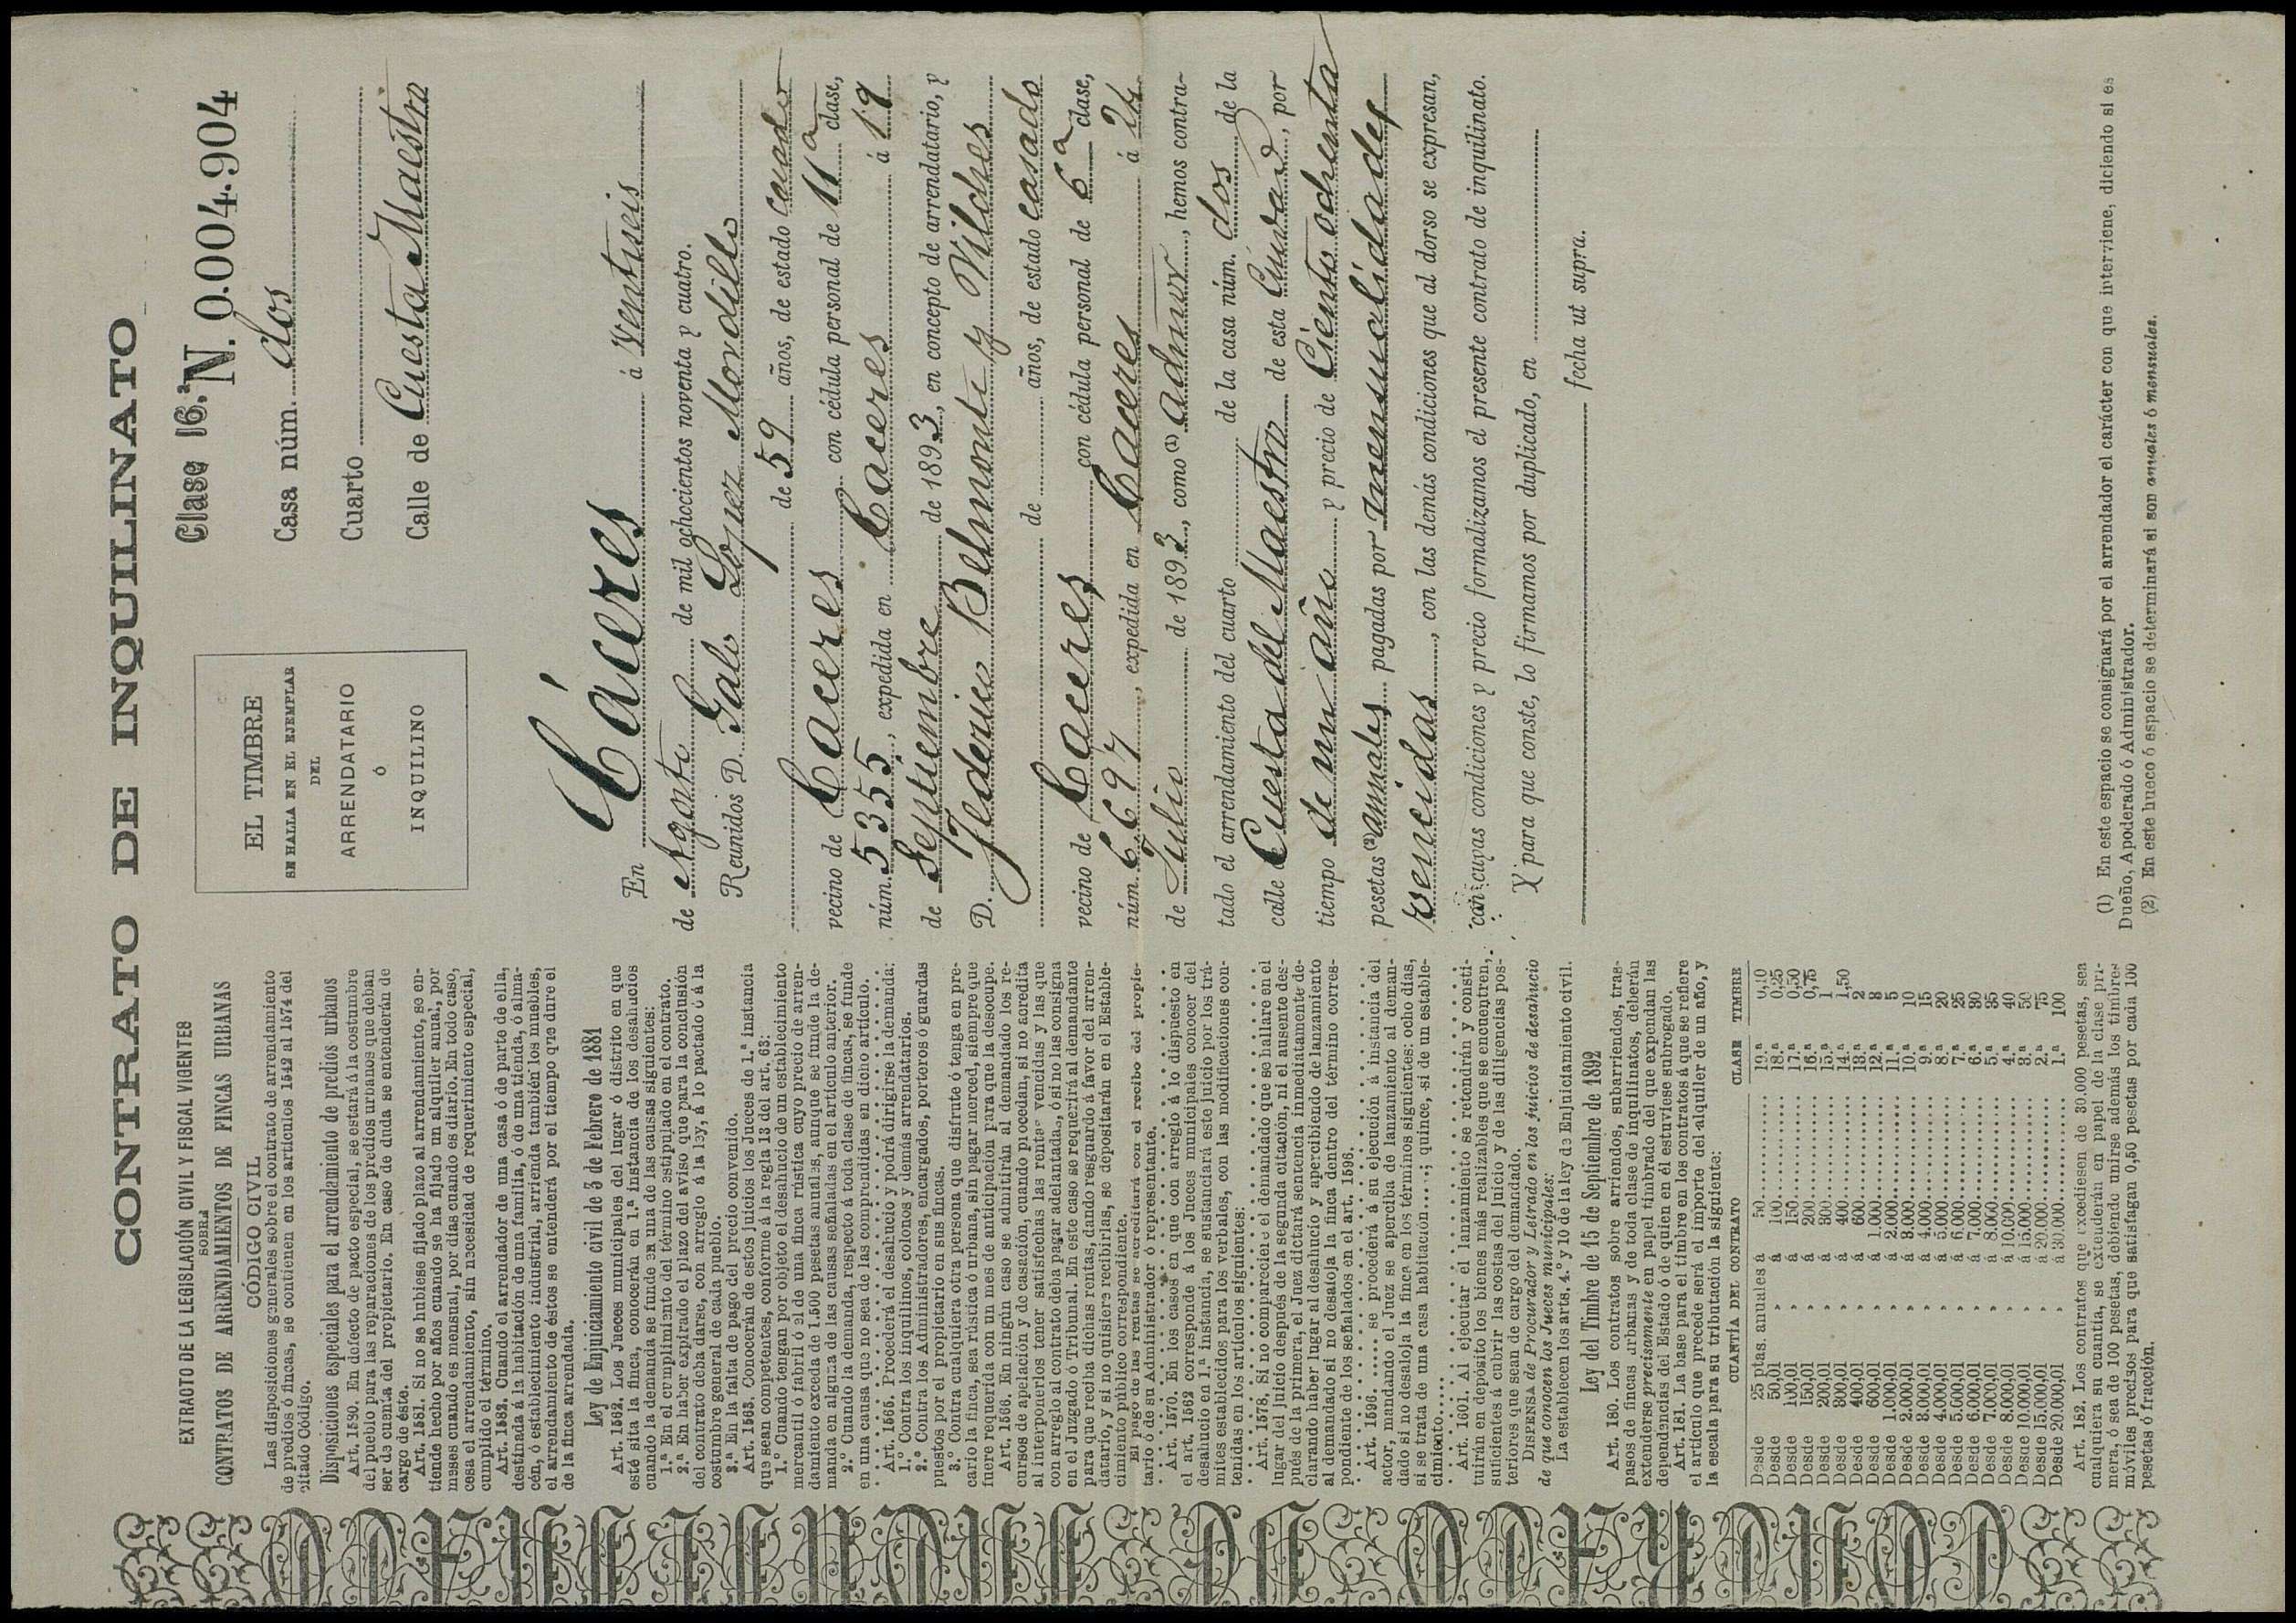 CONTRATO DE INQUILINATO
EXTRACTO DE LA LEGISLACIÓN CIVIL Y FISCAL VIGENTES
SOBRE
CONTRATOS DE ARRENDAMIENTOS DE FINCAS URBANAS
CÓDIGO CIVIL
Las disposiciones generales sobre el contrato de arrendamiento
de predios ó fincas, se contienen en los artículos 1542 al 1574 del
citado Código.
Disposiciones especiales para el arrendamiento de predios urbanos
Art. 1580. En defecto de pacto especial, se estará á la costumbre
del pueblo para las reparaciones de los predios urbanos que deban
ser de cuenta del propietario. En caso de duda se entenderán de
cargo de éste.
Art. 1581. Si no se hubiese fijado plazo al arrendamiento, se en-
tiende hecho por años cuando se ha fijado un alquiler anual, por
meses cuando es mensual, por días cuando es diario. En todo caso,
cesa el arrendamiento, sin necesidad de requerimiento especial,
cumplido el término.
Art. 1582. Cuando el arrendador de una casa ó de parte de ella,
destinada á la habitación de una familia, ó de una tienda, ó alma-
cén, ó establecimiento industrial, arrienda también los muebles,
el arrendamiento de éstos se entenderá por el tiempo que dure el
de la finca arrendada.
Ley de Enjuiciamiento civil de 3 de Febrero de 1881
Art. 1562. Los Jueces municipales del lugar ó distrito en que
esté sita la finca, conocerán en 1.ª instancia de los desahucios
cuando la demanda se funde en una de las causas siguientes:
1.ª En el cumplimiento del término estipulado en el contrato.
2.ª En haber expirado el plazo del aviso que para la conclusión
del contrato deba darse, con arreglo á la ley, á lo pactado ó á la
costumbre general de cada pueblo.
3.ª En la falta de pago del precio convenido.
Art. 1563. Conocerán de estos juicios los Jueces de 1.ª instancia
que sean competentes, conforme á la regla 13 del art. 63:
1.º Cuando tengan por objeto el desahucio de un establecimiento
mercantil ó fabril ó el de una finca rústica cuyo precio de arren-
damiento exceda de 1.500 pesetas anuales, aunque se funde la de-
manda en alguna de las causas señaladas en el artículo anterior.
2.º Cuando la demanda, respecto á toda clase de fincas, se funde
en una causa que no sea de las comprendidas en dicho artículo.
Art. 1565. Procederá el desahucio y podrá dirigirse la demanda:
1.º Contra los inquilinos, colonos y demás arrendatarios.
2.º Contra los Administradores, encargados, porteros ó guardas
puestos por el propietario en sus fincas.
3.º Contra cualquiera otra persona que disfrute ó tenga en pre-
cario la finca, sea rústica ó urbana, sin pagar merced, siempre que
fuere requerida con un mes de anticipación para que la desocupe.
Art. 1566. En ningún caso se admitirán al demandado los re-
cursos de apelación y de casación, cuando procedan, si no acredita
al interponerlos tener satisfechas las rentas vencidas y las que
con arreglo al contrato deba pagar adelantadas, ó si no las consigna
en el Juzgado ó Tribunal. En este caso se requerirá al demandante
para que reciba dichas rentas, dando resguardo á favor del arren-
datario, y si no quisiere recibirlas, se depositarán en el Estable-
cimiento público correspondiente.
El pago de las rentas se acreditará con el recibo del propie-
tario ó de su Administrador ó representante.
Art. 1570. En los casos en que con arreglo á lo dispuesto en
el art. 1562 corresponde á los Jueces municipales conocer del
desahucio en 1.ª instancia, se sustanciará este juicio por los trá-
mites establecidos para los verbales, con las modificaciones con-
tenidas en los artículos siguientes:
Art. 1578. Si no compareciere el demandado que se hallare en el
lugar del juicio después de la segunda citación, ni el ausente des-
pués de la primera, el Juez dictará sentencia inmediatamente de-
clarando haber lugar al desahucio y apercibiendo de lanzamiento
al demandado si no desaloja la finca dentro del término corres-
pondiente de los señalados en el art. 1596.
Art. 1596. ..... se procederá á su ejecución á instancia del
actor, mandando el Juez se aperciba de lanzamiento al deman-
dado si no desaloja la finca en los términos siguientes: ocho días,
si se trata de una casa habitación....; quince, si de un estable-
cimiento.....
Art. 1601. Al ejecutar el lanzamiento se retendrán y consti-
tuirán en depósito los bienes más realizables que se encuentren,
suficientes á cubrir las costas del juicio y de las diligencias pos-
teriores que sean de cargo del demandado.
DISPENSA de Procurador y Letrado en los juicios de desahucio
de que conocen los Jueces municipales:
La establecen los arts. 4.º y 10 de la ley de Enjuiciamiento civil.
Ley del Timbre de 15 de Septiembre de 1892
Art. 180. Los contratos sobre arriendos, subarriendos, tras-
pasos de fincas urbanas y de toda clase de inquilinatos, deberán
extenderse precisamente en papel timbrado del que expendan las
dependencias del Estado ó de quien en él estuviese subrogado.
Art. 181. La base para el timbre en los contratos á que se refiere
el artículo que precede será el importe del alquiler de un año, y
la escala para su tributación la siguiente:
CUANTÍA DEL CONTRATO CLASE TIMBRE
Desde 25 ptas. anuales á 50 19.ª 0,10
Desde 50,01 » á 100 18.ª 0,25
Desde 100,01 » á 150 17.ª 0,50
Desde 150,01 » á 200 16.ª 0,75
Desde 200,01 » á 300 15.ª 1
Desde 300,01 » á 400 14.ª 1,50
Desde 400,01 » á 600 13.ª 2
Desde 600,01 » á 1.000 12.ª 3
Desde 1.000,01 » á 2.000 11.ª 5
Desde 2.000,01 » á 3.000 10.ª 10
Desde 3.000,01 » á 4.000 9.ª 15
Desde 4.000,01 » á 5.000 8.ª 20
Desde 5.000,01 » á 6.000 7.ª 25
Desde 6.000,01 » á 7.000 6.ª 30
Desde 7.000,01 » á 8.000 5.ª 35
Desde 8.000,01 » á 10.000 4.ª 40
Desde 10.000,01 » á 15.000 3.ª 50
Desde 15.000,01 » á 20.000 2.ª 75
Desde 20.000,01 » á 30.000 1.ª 100
Art. 182. Los contratos que excediesen de 30.000 pesetas, sea
cualquiera su cuantía, se extenderán en papel de la clase pri-
mera, ó sea de 100 pesetas, debiendo unirse además los timbres
móviles precisos para que satisfagan 0,50 pesetas por cada 100
pesetas ó fracción.
EL TIMBRE
SE HALLA EN EL EJEMPLAR
DEL
ARRENDATARIO
Ó
INQUILINO
Clase 16.ª N. 0.004.904
Casa núm. dos
Cuarto
Calle de Cuesta Maestro
En Cáceres á Ventiseis
de Agosto de mil ochocientos noventa y cuatro.
Reunidos D. Galo Lopez Mordillo
de 59 años, de estado casado
vecino de Caceres con cédula personal de 11ª clase,
núm. 5355, expedida en Caceres á 19
de Septiembre de 1893, en concepto de arrendatario, y
D. Federico Belmonte y Vilches
de años, de estado casado
vecino de Caceres con cédula personal de 6ª clase,
núm. 6697, expedida en Caceres á 24
de Julio de 1893, como (1) Admor, hemos contra-
tado el arrendamiento del cuarto de la casa núm. dos de la
calle de Cuesta del Maestro de esta Ciudad, por
tiempo de un año y precio de Ciento ochenta
pesetas (2) anuales pagadas por mensualidades
vencidas, con las demás condiciones que al dorso se expresan,
con cuyas condiciones y precio formalizamos el presente contrato de inquilinato.
Y para que conste, lo firmamos por duplicado, en
fecha ut supra.
(1) En este espacio se consignará por el arrendador el carácter con que interviene, diciendo si es
Dueño, Apoderado ó Administrador.
(2) En este hueco ó espacio se determinará si son anuales ó mensuales.